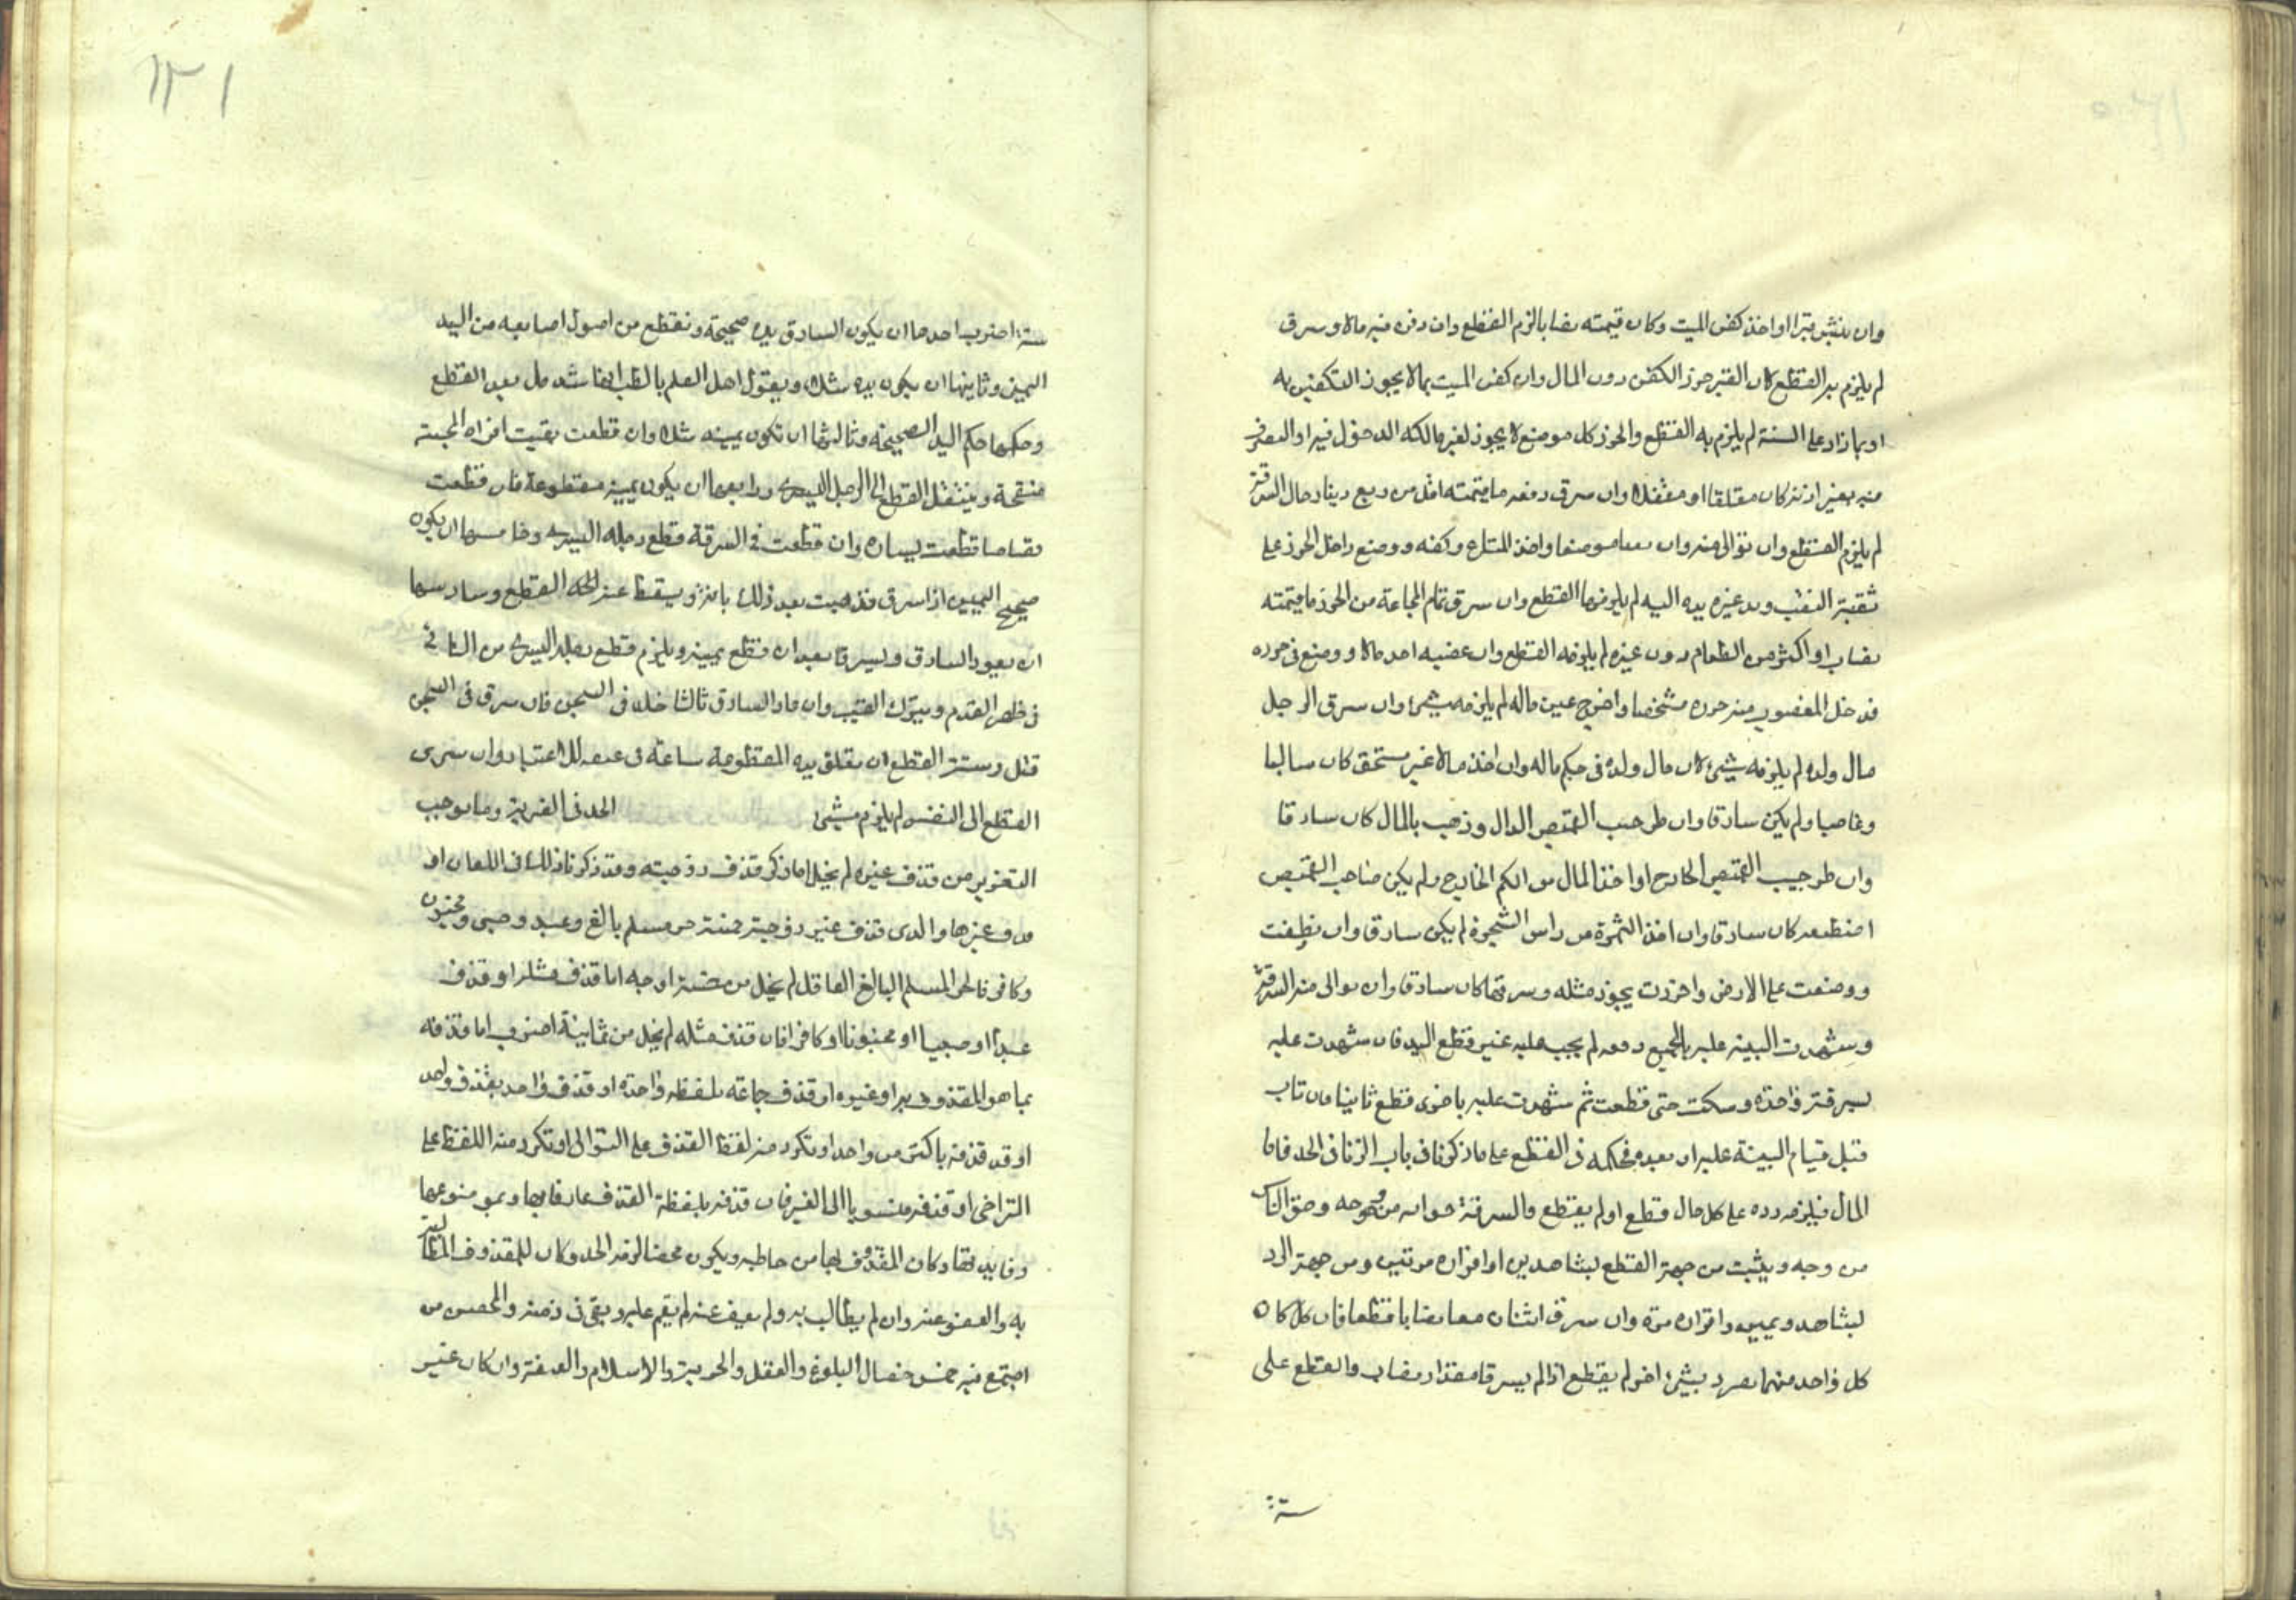 وان نبش قبرا او اخذ كفن الميت وكان قيمته نصابا لزم القطع وان دفن فيه مالا وسرق
لم يلزم به القطع لان القبر حرز الكفن دون المال وان كفن الميت بما لا يجوز التكفين به
او بما زاد على السنة لم يلزم به القطع والحرز كل موضع لا يجوز لغير مالكه الدخول فيه او التصرف
فيه بغير اذنه كان مغلقا او مقفلا وان سرق دفعه ما قيمته اقل من ربع دينار حال السرقة
لم يلزم القطع وان توالى منه وان نقبا موضعا واخذ المتاع وكفه ووضع داخل الحرز على
ثقبة النقب ومد غيره يده اليه لم يلزمهما القطع وان سرق تمام المجاعة من الحرز ما قيمته
نصاب او اكثر من الطعام دون غيره لم يلزمه القطع وان غصبه احد مالا ووضع في حرزه
فدخل المغصوب منه حرزه مشخصا واخرج عين ماله لم يلزمه شيء وان سرق الرجل
مال ولده لم يلزمه شيء لان مال ولده في حكم ماله وان اخذ مالا غير مستحق كان سالبا
وغاصبا ولم يكن سارقا وان طر جيب القميص الدال وذهب بالمال كان سارقا
وان طر جيب القميص الخارج او اخذ المال من الكم الخارج ولم يكن صاحب القميص
اضطبعه كان سارقا وان اخذ الثمرة من راس الشجرة لم يكن سارقا وان نظفت
ووضعت على الارض واحرزت بحرز مثله وسرقها كان سارقا وان توالى منه السرقة
وشهدت البينه عليه بالجميع دفعه لم يجب عليه غير قطع اليد فان شهدت عليه
بسرقة واحدة وسكت حتى قطعت ثم شهدت عليه باخرى قطع ثانيا فان تاب
قبل قيام البينة عليه او بعده فحكمه في القطع على ما ذكرنا في باب الزنا في الحد فاما
المال فيلزمه رده على كل حال قطع او لم يقطع والسرقة من وجه وحق الناس
من وجه ويثبت من جهة القطع بشاهدين او اقراره مرتين ومن جهة الرد
بشاهد ويمين واقراره مرة وان سرق اثنان معا نصابا قطعا فان كل كان
كل واحد منهما بشيء اخر لم يقطع اذا لم يسرقا مقدار نصاب والقطع على
ستة
١٢١
ستة اضرب احدها ان يكون السارق يده صحيحة ونقطع من اصول اصابعه من اليد
اليمنى وثانيها ان يكون يده شلاء ويقول اهل العلم بالطب انها بعد القطع
وحكمها حكم اليد الصحيحة وثالثها ان تكون يمينه شلاء وان قطعت بقيت افواه المجسة
منفتحة وينتقل القطع الى الرجل اليسرى ورابعها ان يكون يمينه مقطوعة فان قطعت
قصاصا قطعت يساره وان قطعت في السرقة قطع رجله اليسرى وخامسها ان يكون
صحيح اليمين اذا سرق فذهبت بعد ذلك ويسقط عنه القطع وسادسها
ان يعود السارق ويسرق بعد ان قطع يمينه ويلزم قطع رجله اليسرى من الناتئ
في ظهر القدم ويترك العقب وان عاد السارق ثالثا خلد في السجن فان سرق في السجن
قتل القطع ان يعلق يده المقطوعة ساعة في عنقه للاعتبار وان سرى
القطع الى النفس لم يلزم شيء الحد في الفرية وما يوجب
التعزير من قذف غيره لم يخل اما ذكر قذف زوجته وقد ذكرنا ذلك في اللعان او
قذف غيرها والذي قذف غير زوجته خمسة حر مسلم بالغ وعبد وصبي ومجنون
وكافر فالحر المسلم البالغ العاقل لم يخل من خمسة اوجه اما قذف مثله او قذف
عبدا او صبيا او مجنونا او كافرا فان قذف مثله لم يخل من ثمانية اضرب اما قذفه
بما هو المقذوف به او غيره او قذف جماعة بلفظه واحدة او قذف واحد بقذف واحد
او قد قذفه باكثر من واحد او تكرر منه لفظ القذف على التوالي او تكرر منه اللفظ على
التراخي او قذفه منسوبا الى الغير فان قذفه بلفظة القذف عارفا بها وبموضوعها
وفايدتها وكان المقذوف بها من خاطبه ويكون محصنا لزمه الحد وكان للمقذوف المطالبة
به والعفو عنه وان لم يطالب به ولم يعف عنه لم يقم عليه وبقي في ذمته والمحصن من
اجتمع فيه خمس خصال البلوغ والعقل والحرية والاسلام والعفة وان كان غير